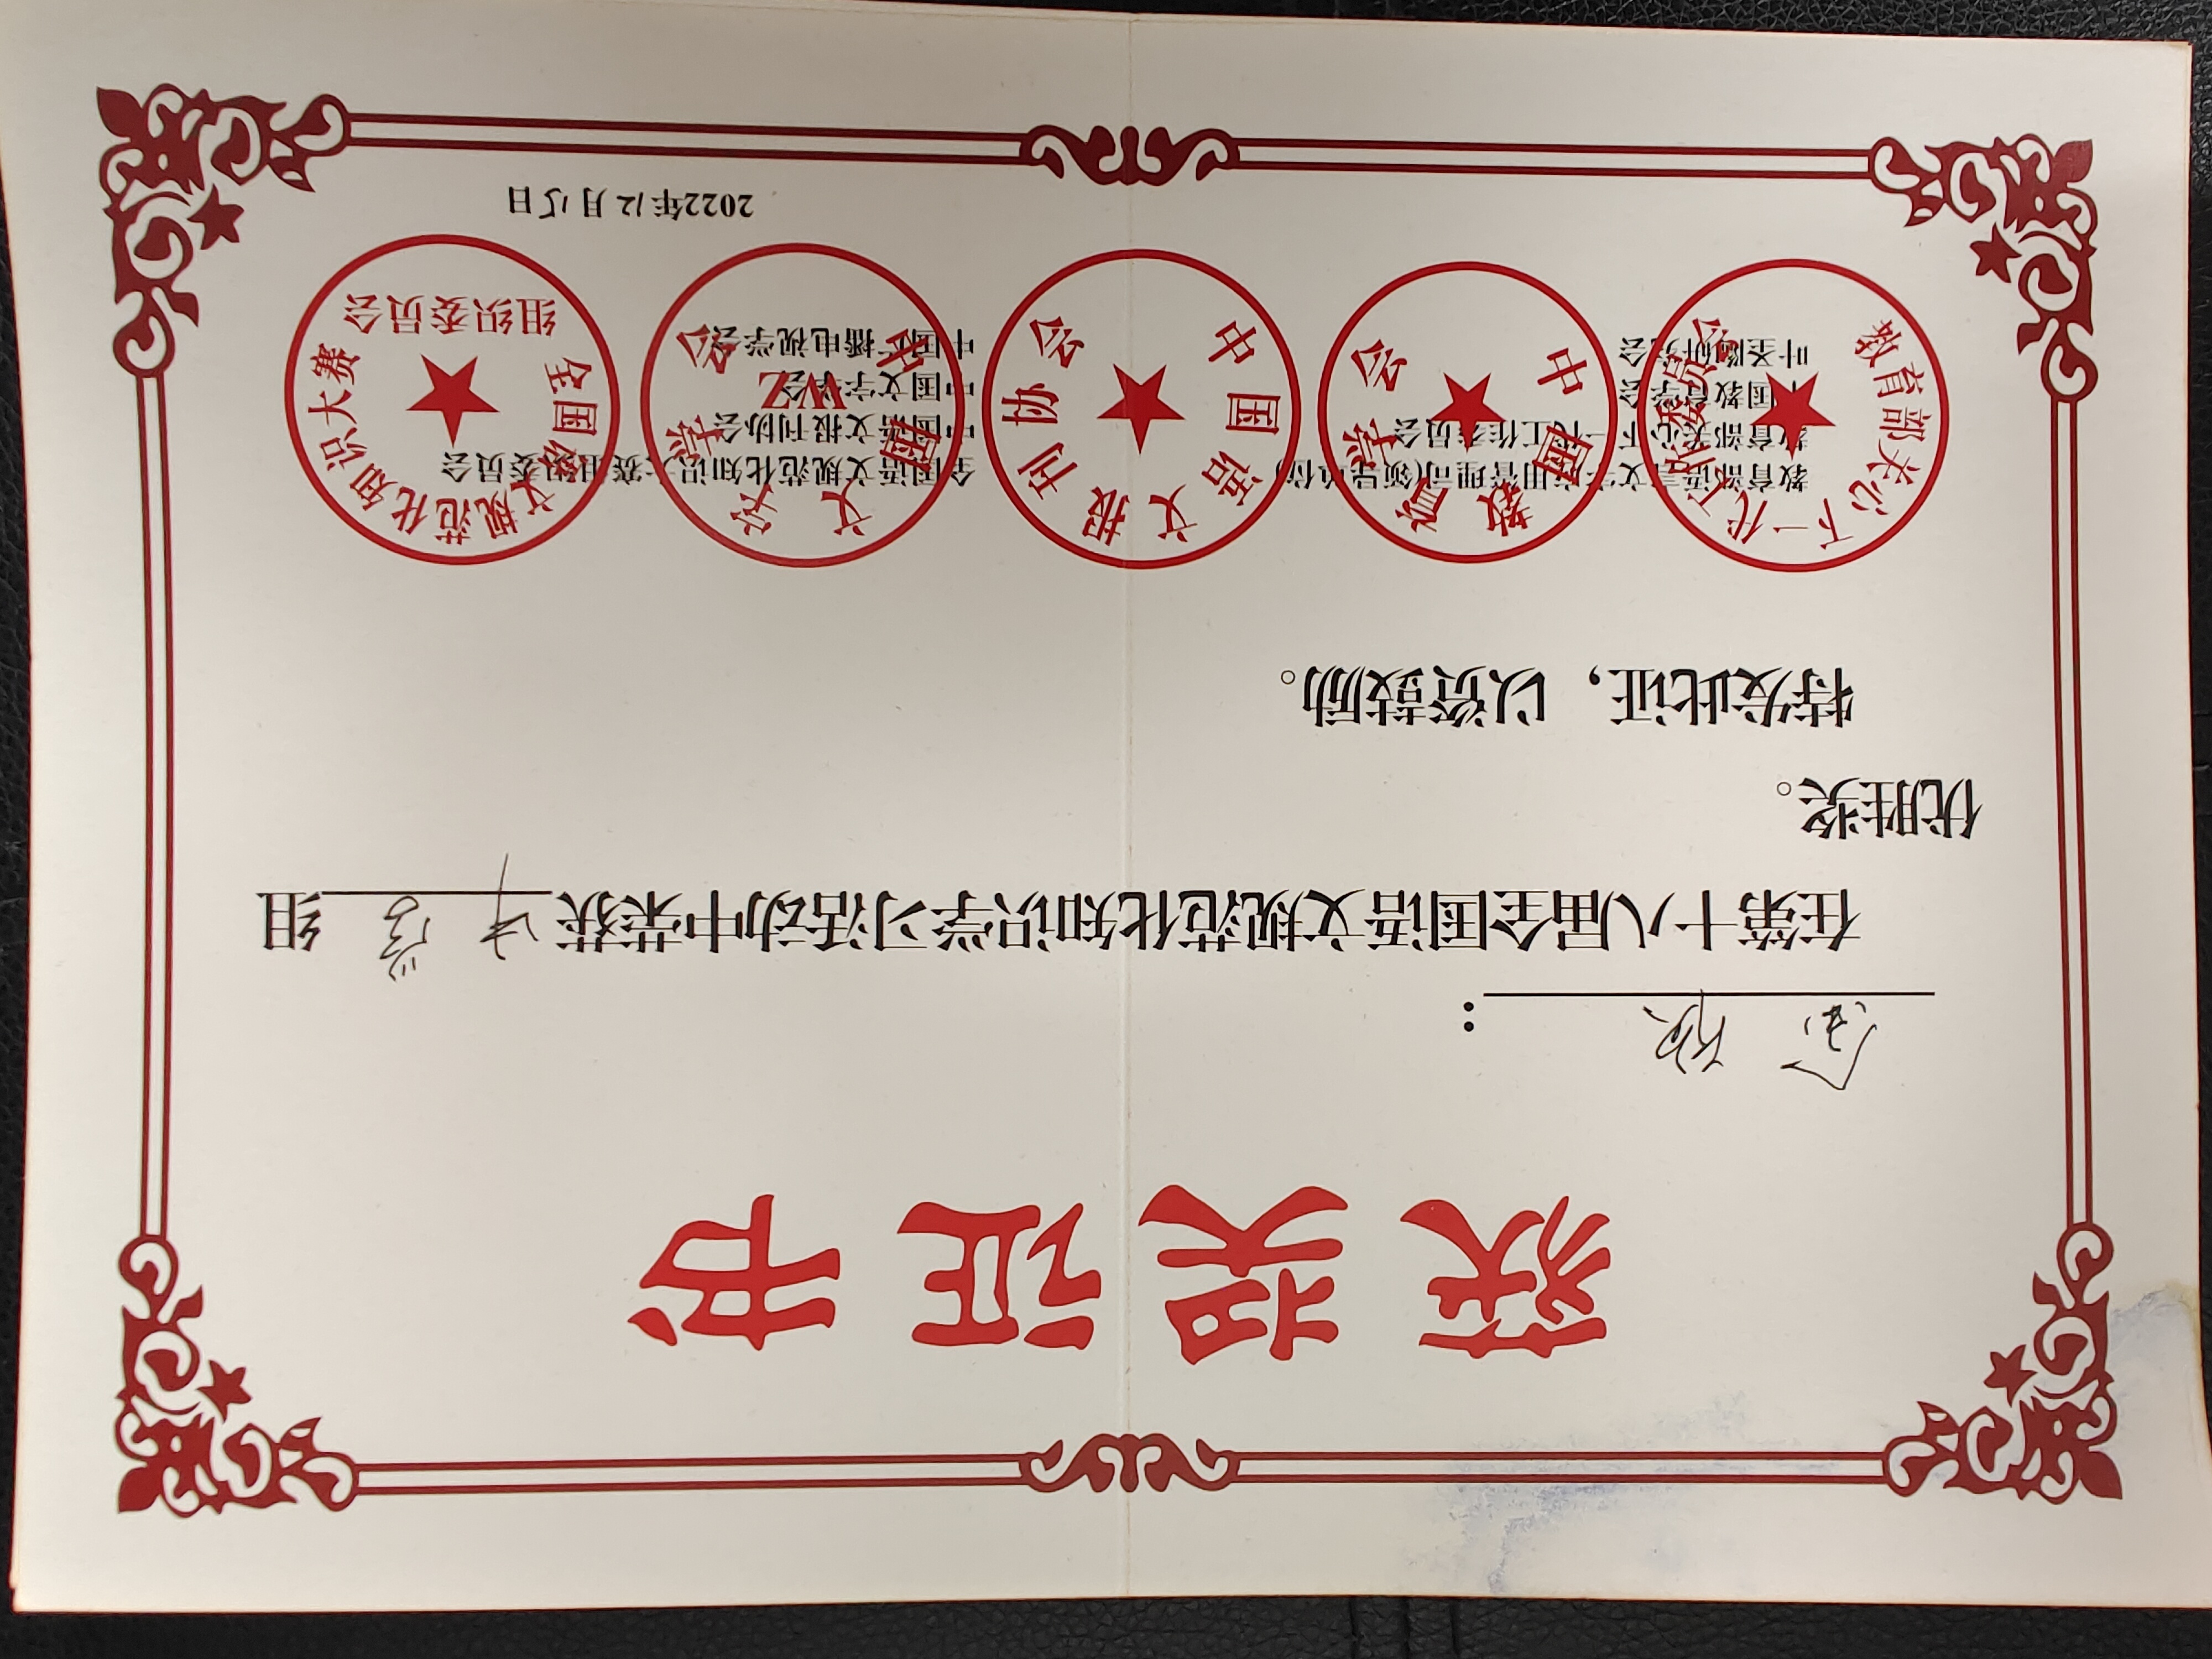 获奖证书
金 ：
在第十八届全国语文规范化知识学习活动中荣获 中学 组
优胜奖。
特发此证，以资鼓励。
教育部语言文字应用管理司(领导单位)
教育部关心下一代工作委员会
中国教育学会
叶圣陶研究会
全国语文规范化知识大赛组织委员会
中国语文报刊协会
中国文字学会
中国广播电视学会
教育部关心下一代工作委员会
中国教育学会
中国语文报刊协会
中国文字学会
ZWZ
全国语文规范化知识大赛
组织委员会
2022年12月15日